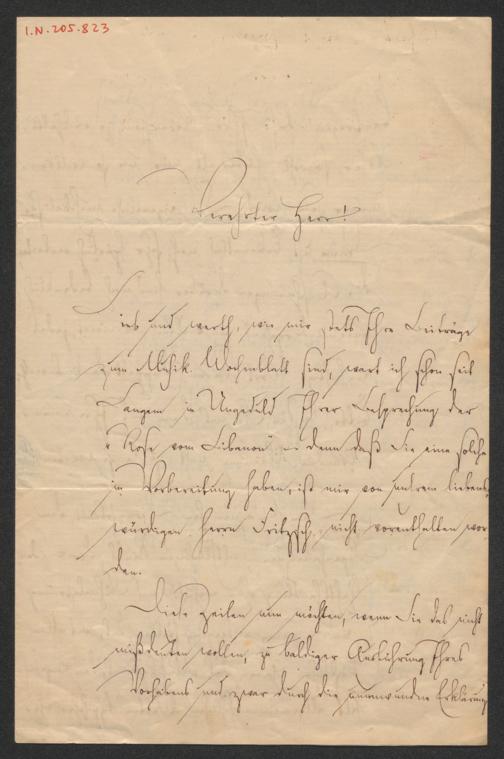 I.N.205.823
Verehrter Herr!
Lieb und werth, wie mir stets Ihre Beiträge
zum Musik. Wochenblatt sind, wart ich schon seit
Langem in Ungeduld Ihrer Besprechung der
"Rose vom Libanon" denn daß Sie eine solche
in Vorbereitung haben, ist mir von unsrem liebens
würdigen Herrn Fritzsch nicht vorenthalten wor
den.
Diese Zeilen nun möchten, wenn Sie das nicht
mißdeuten wollen, zu baldiger Ausführung Ihres
Vorhabens und zwar durch die unumwundne Erklärung